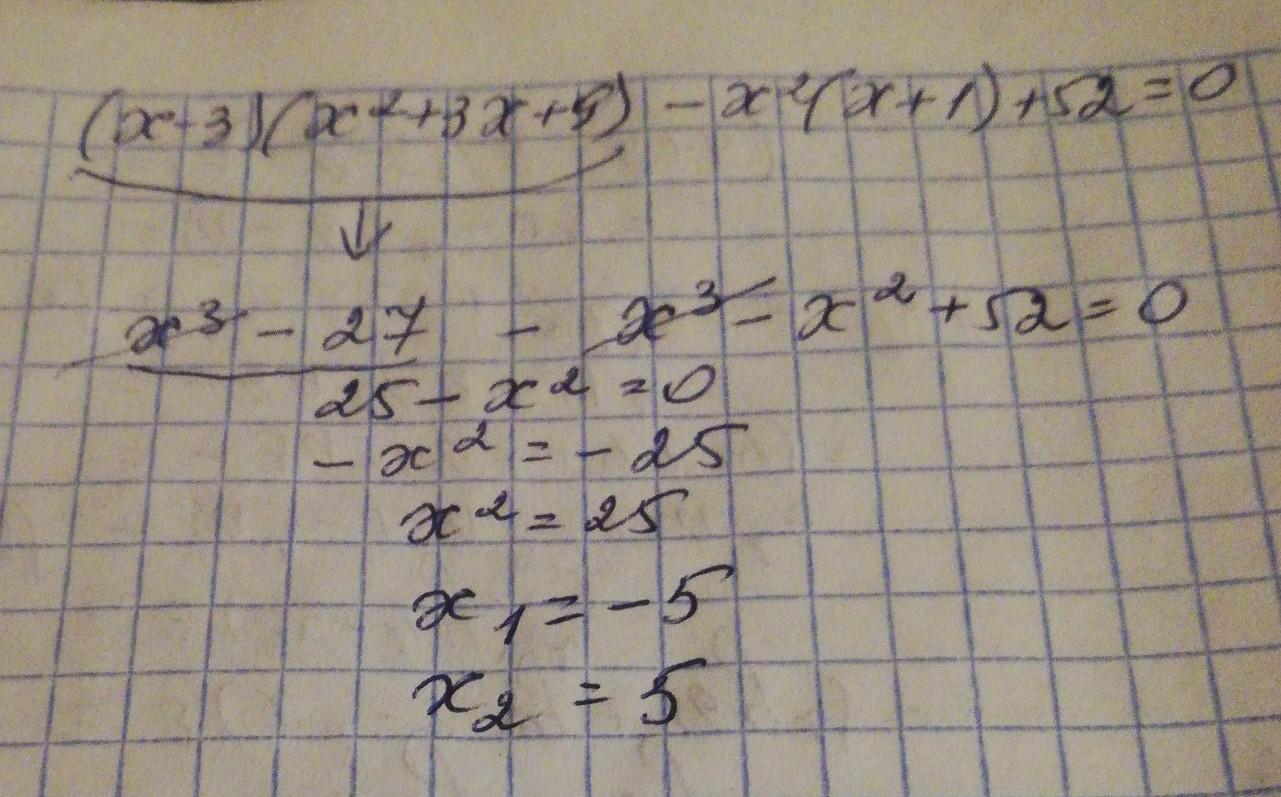 (x-3)(x²+3x+9) - x²(x+1)+52=0
↓
x³ - 27 - x³ - x² + 52 = 0
25 - x² = 0
- x² = - 25
x² = 25
x₁ = - 5
x₂ = 5